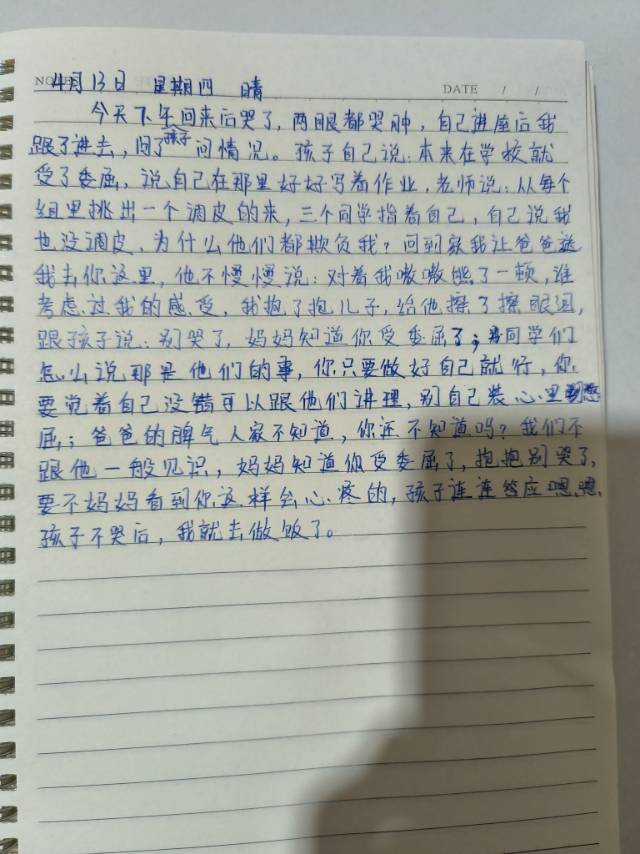 NO
4月13日 星期四 晴
DATE / /
今天下午回来后哭了，两眼都哭肿，自己进屋后我
跟了进去，问了孩子问情况。孩子自己说：本来在学校就
受了委屈，说自己在那里好好写着作业，老师说：从每个
组里挑出一个调皮的来，三个同学指着自己，自己说我
也没调皮，为什么他们都欺负我？回到家我让爸爸送
我去你这里，他不慢慢说：对着我嗷嗷熊了一顿，谁
考虑过我的感受，我抱了抱儿子，给他擦了擦眼泪，
跟孩子说：别哭了，妈妈知道你受委屈了；同学们
怎么说那是他们的事，你只要做好自己就行，你
要觉着自己没错可以跟他们讲理，别自己装心里
屈；爸爸的脾气人家不知道，你还不知道吗？我们不
跟他一般见识，妈妈知道你受委屈了，抱抱别哭了，
要不妈妈看到你这样会心疼的，孩子连连答应嗯嗯。
孩子不哭后，我就去做饭了。